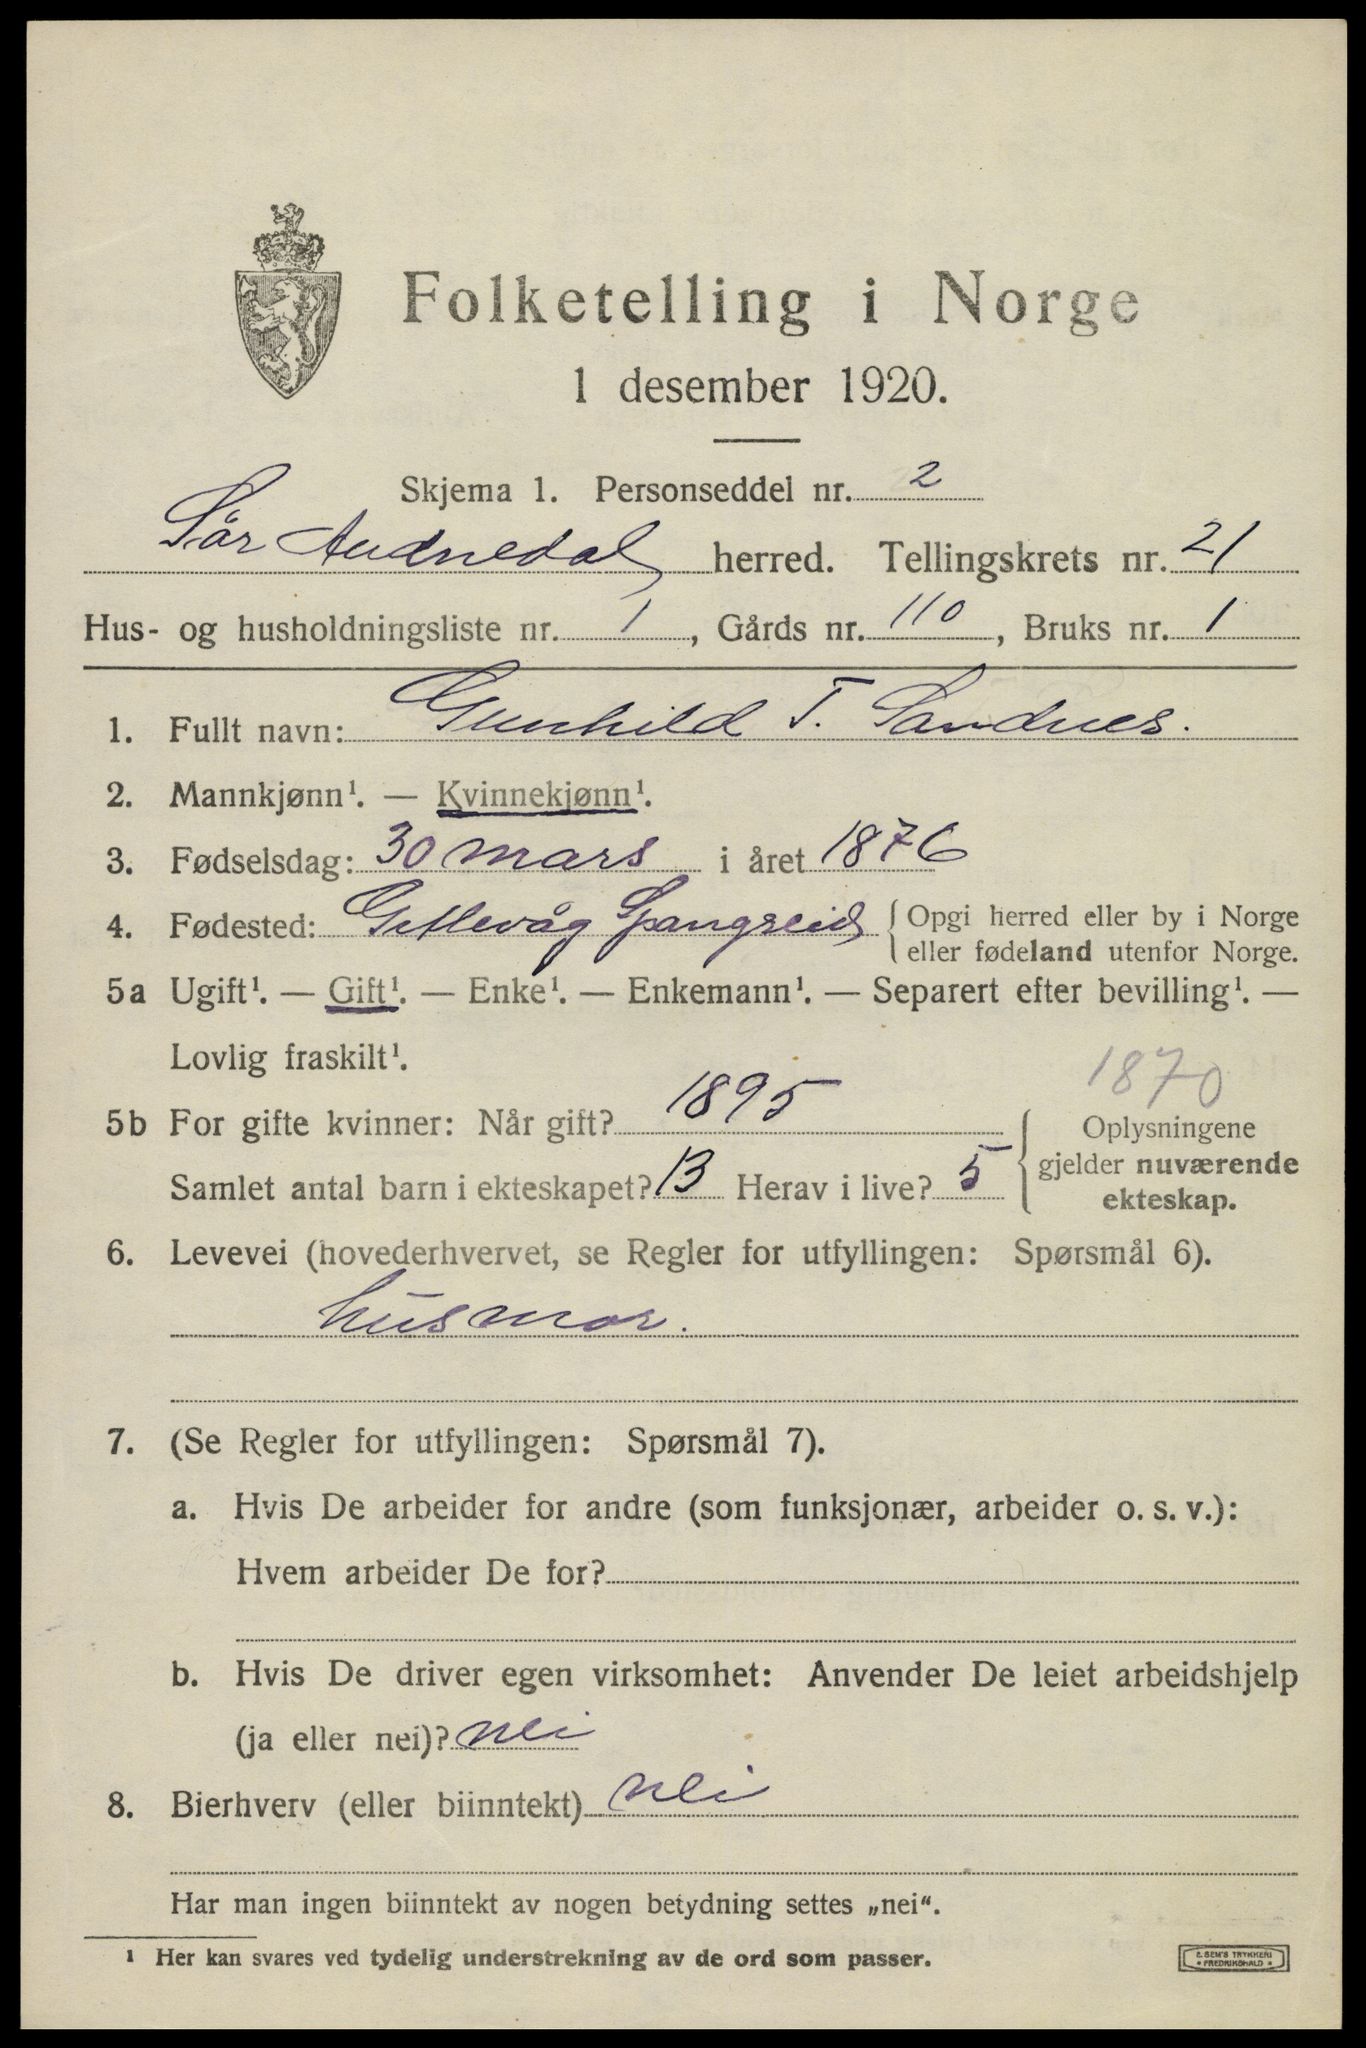 Folketelling i Norge
1 desember 1920.
Skjema 1. Personseddel nr. 2
Sør Audnedal herred. Tellingskrets nr. 21
Hus- og husholdningsliste nr. 1, Gårds nr. 110, Bruks nr. 1
1. Fullt navn: Gunhild T. Sandnes.
2. Mannkjønn¹. — Kvinnekjønn¹.
3. Fødselsdag: 30 mars i året 1876
4. Fødested: Gitlevåg Spangreid { Opgi herred eller by i Norge
eller fødeland utenfor Norge.
5a Ugift¹. — Gift¹. — Enke¹. — Enkemann¹. — Separert efter bevilling¹. —
Lovlig fraskilt¹.
1870
5b For gifte kvinner: Når gift? 1895 Oplysningene
gjelder nuværende
Samlet antal barn i ekteskapet? 13 Herav i live? 5
ekteskap.
6. Levevei (hovederhvervet, se Regler for utfyllingen: Spørsmål 6).
husmor.
7. (Se Regler for utfyllingen: Spørsmål 7).
a. Hvis De arbeider for andre (som funksjonær, arbeider o. s. v.):
Hvem arbeider De for?
b. Hvis De driver egen virksomhet: Anvender De leiet arbeidshjelp
(ja eller nei)? nei
8. Bierhverv (eller biinntekt) nei
Har man ingen biinntekt av nogen betydning settes „nei“.
¹ Her kan svares ved tydelig understrekning av de ord som passer.
E. SEM'S TRYKKERI
* FREDRIKSHALD *